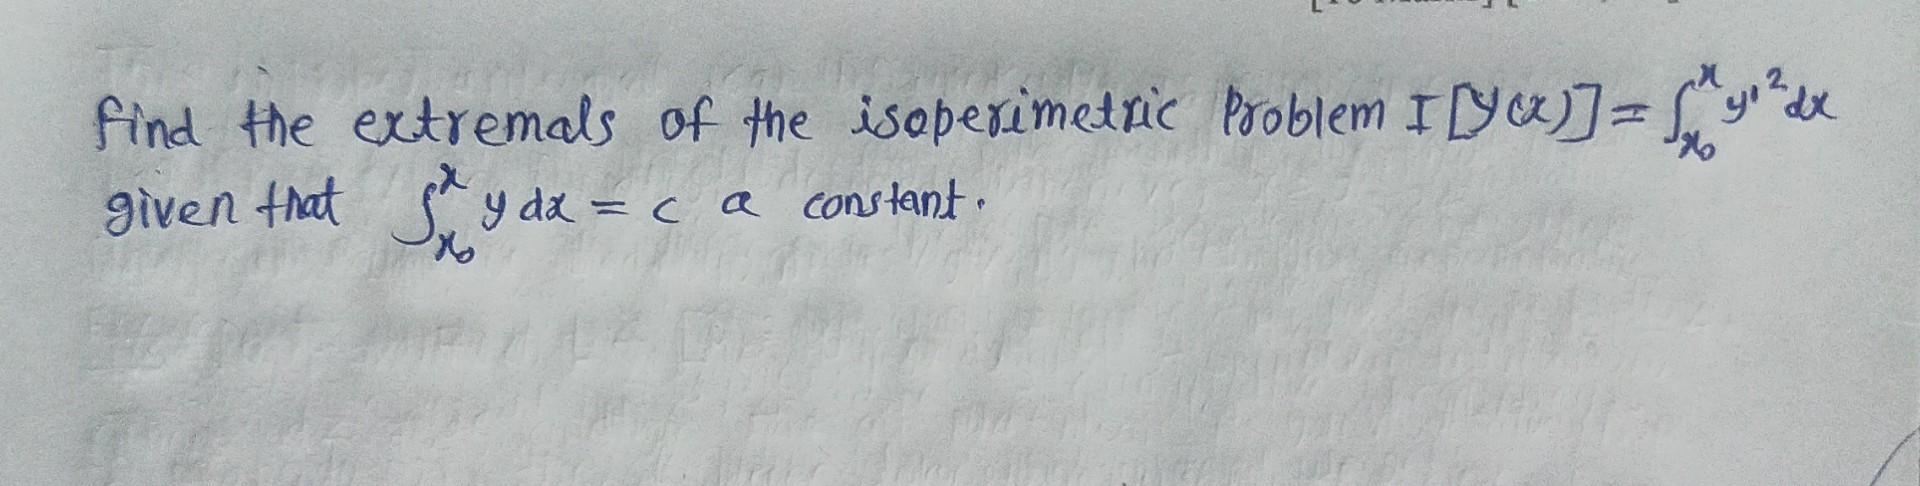 find the extremals of the isoperimetric Problem I[y(x)] = ∫ₓ₀ˣ y'² dx
given that ∫ₓ₀ˣ y dx = c a constant.